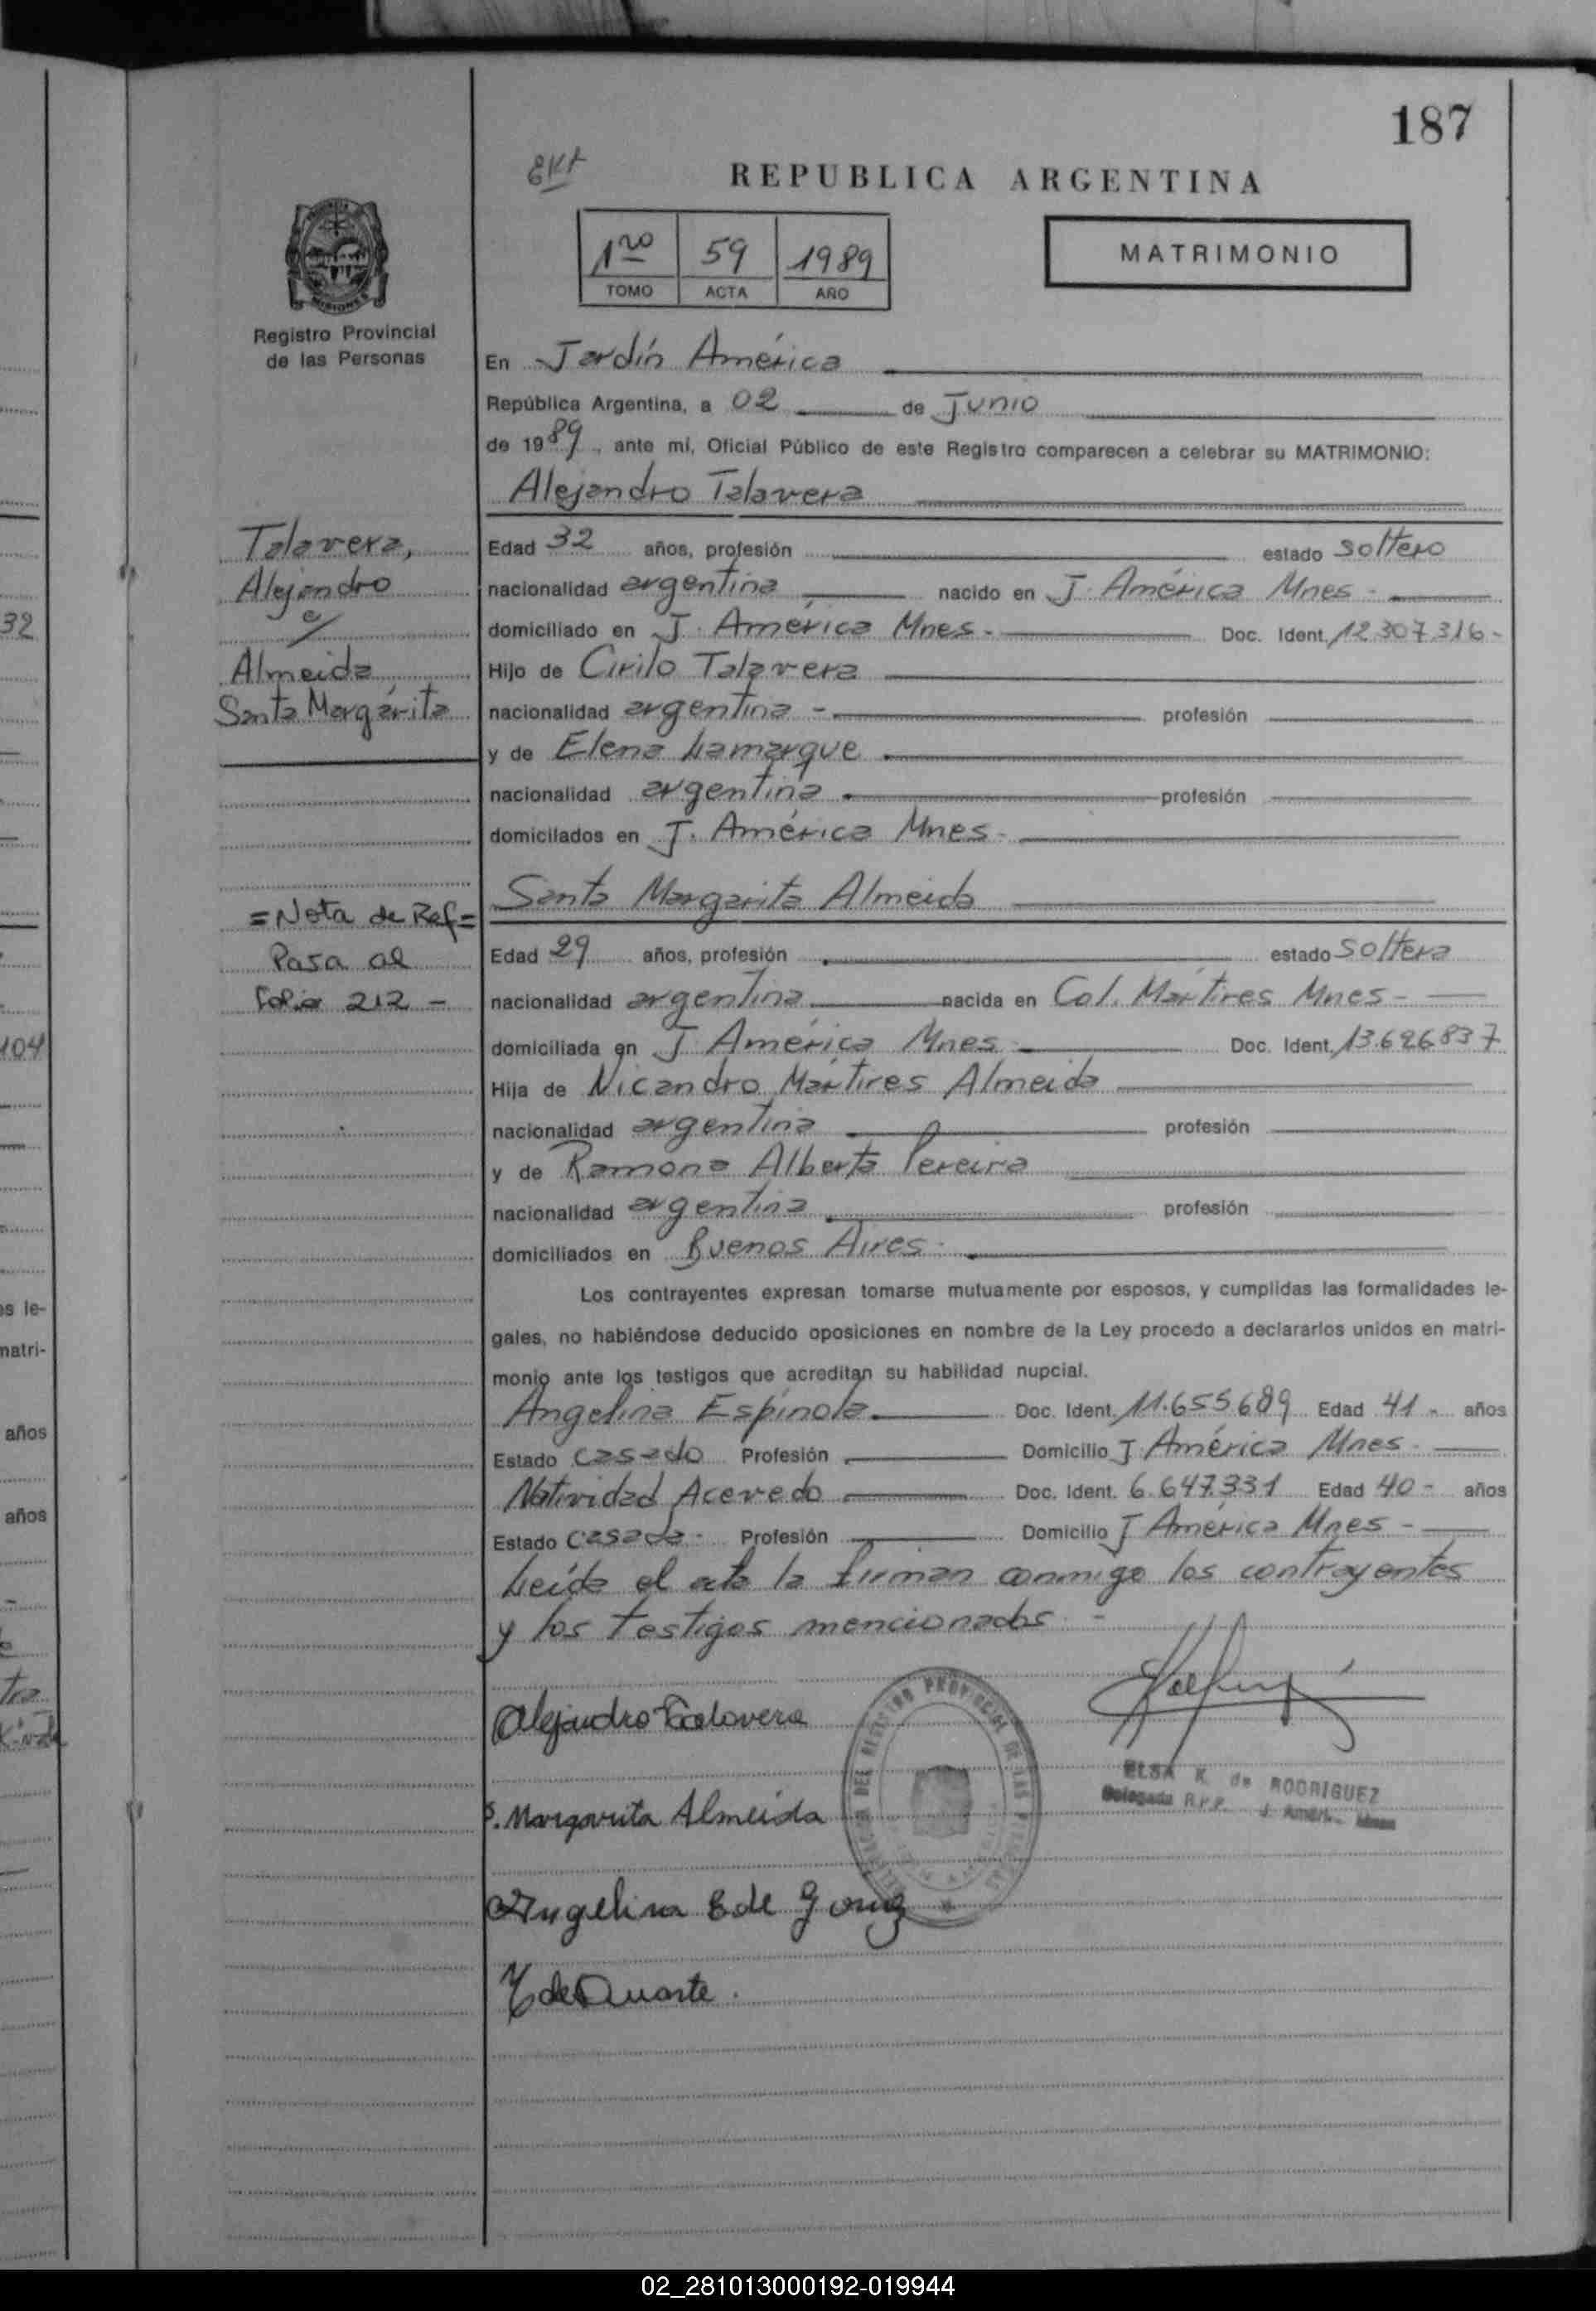 187
REPUBLICA ARGENTINA
1ro 59 1989
TOMO ACTA AÑO
MATRIMONIO
MISIONES
Registro Provincial
de las Personas
En Jardín América
República Argentina, a 02 de Junio
de 1989, ante mi, Oficial Público de este Registro comparecen a celebrar su MATRIMONIO:
Alejandro Talavera
Talavera,
Alejandro
c/
Almeida,
Santa Margarita
Edad 32 años, profesión estado soltero
nacionalidad argentina nacido en J. América Mnes -
domiciliado en J. América Mnes - Doc. Ident. 12.307.316 -
Hijo de Cirilo Talavera
nacionalidad argentina - profesión
y de Elena Lamarque
nacionalidad argentina profesión
domiciliados en J. América Mnes -
Santa Margarita Almeida
= Nota de Ref =
Pasa al
folio 212 -
Edad 29 años, profesión estado soltera
nacionalidad argentina nacida en Col. Mártires Mnes -
domiciliada en J América Mnes Doc. Ident. 13.626.837
Hija de Nicandro Mártires Almeida
nacionalidad argentina profesión
y de Ramona Alberta Pereira
nacionalidad argentina profesión
domiciliados en Buenos Aires -
Los contrayentes expresan tomarse mutuamente por esposos, y cumplidas las formalidades le-
gales, no habiéndose deducido oposiciones en nombre de la Ley procedo a declararlos unidos en matri-
monio ante los testigos que acreditan su habilidad nupcial.
Angelina Espínola Doc. Ident. 11.655.689 Edad 41 - años
Estado casado Profesión Domicilio J. América Mnes -
Natividad Acevedo Doc. Ident. 6.647.331 Edad 40 - años
Estado casada - Profesión Domicilio J América Mnes -
Leída el acta la firman conmigo los contrayentes
y los testigos mencionados -
Alejandro Talavera
S. Margarita Almeida
DEL REGISTRO PROVINCIAL DE LAS PERSONAS
ELSA K. de RODRIGUEZ
Delegada R.P.P. J. Amér. Mnes
Angelina E de
de Duarte.
32
104
es le-
matri-
años
años
02_281013000192-019944